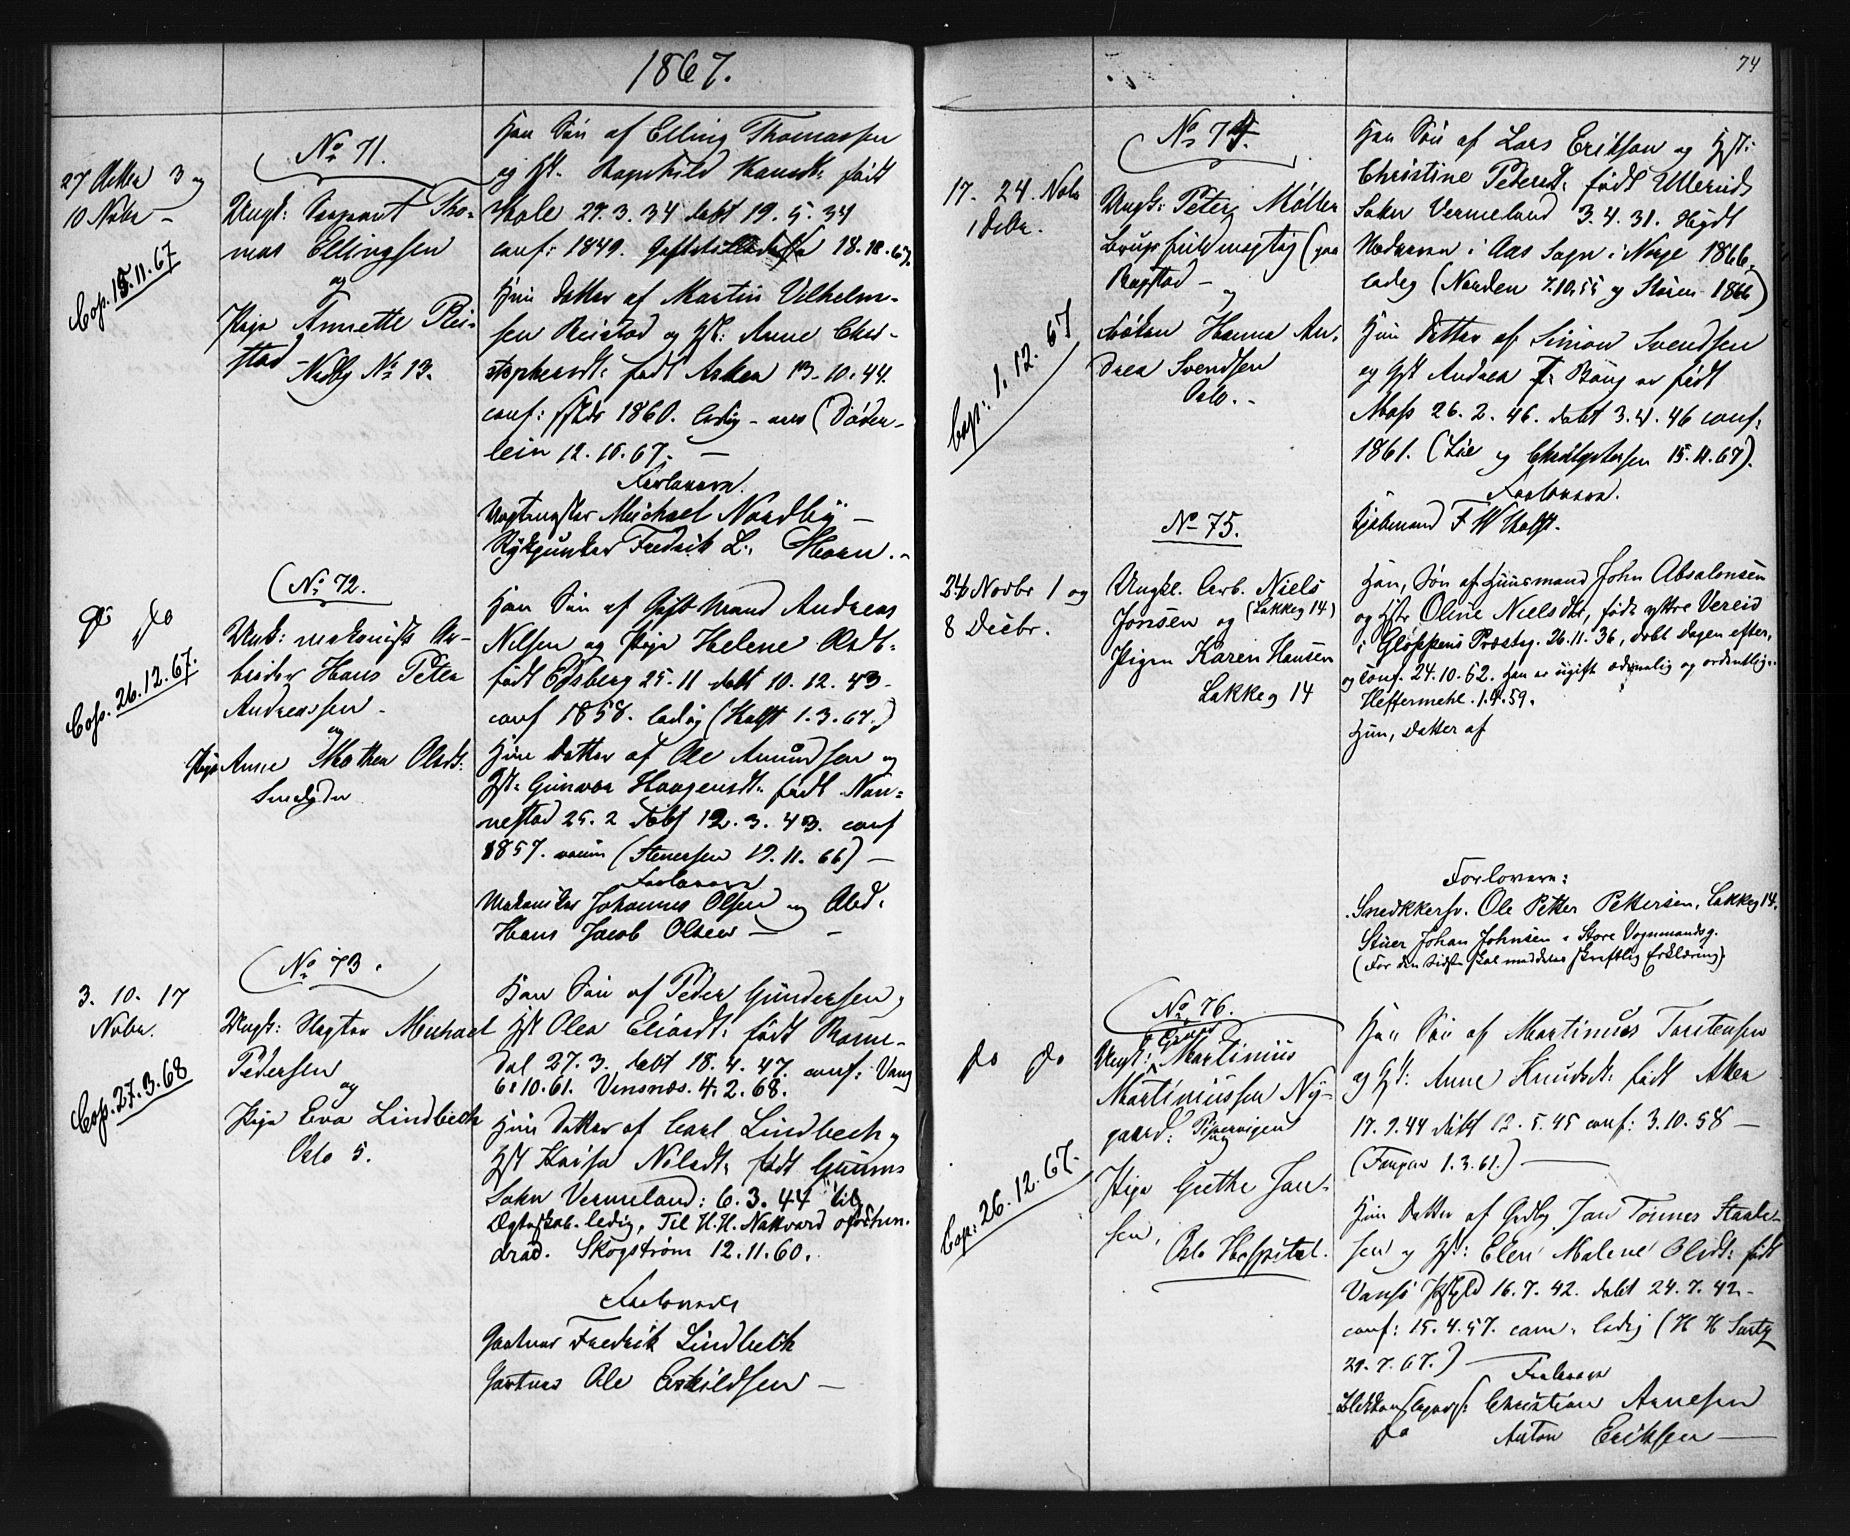 1867.
No 71.
27 Octbr 3 og
10 Novbr —
Cop. 15.11.67
Ungk: Sergeant Tho-
mas Ellingsen
og
Pige Annette Rei-
stad
Nedby No 13.
Han Søn af Elling Thomassen
og Hst. Ragnhild Hansdt: født
Hole 27.3.34 døbt 19.5.34
conf: 1849. 18.10.67.
Hun Datter af Martin Vilhelm-
sen Reistad og Hst: Anne Chri-
stophersdt: født Asker 13.10.44.
conf: 1860. ledig – (Döder-
lein 12.10.67. —
Forlovere.
Michael Nordby —
Fredrik L. Horn. –
No 72.
do do
Cop. 26.12.67.
Ungk: Ar-
beider Hans Peter
Andreassen –
og
Pige Anne Mathea Olsdt:
Han Søn af Andreas
Nilsen og Pige Helene Olsdt.
født Edsberg 25.11 døbt 10.12.43
conf 1858. ledig (Halst 1.3.67.)
Hun Datter af Ole Amundsen og
Hst: Gunvor Haagensdt: født Nan-
nestad 25.2 døbt 12.3.43. conf
1857. (Stenersen 19.11.66) —
Forlovere
Johannes Olsen og Arbd.
Hans Jacob Olsen — –
No 73.
3. 10. 17
Novbr.
Cop. 27.3.68
Ungk: Slagter Michael
Pedersen
og
Pige Eva Lindbech
Oslo 5.
Han Søn af Peder Gundersen,
Hst Olea født Roms-
dal 27.3. døbt 18.4.47. conf: Vang
6.10.61. Vinsnæs. 4.2.68.
Hun Datter af Carl Lindbech og
Hst Kaisa Nilsdt: født Gunnars
Sokn Vermeland: 6.3.44 til
Ægteskab ledig. Til H.H.
Skogstrøm 12.11.60.
Forlovere
Gartner Fredrik Lindbech
Gartner Ole Eskildsen —
74
No 74.
17. 24. Novbr
1 Debr.
Cop: 1.12.67
Ungk: Peter Møller
Brugsfuldmægtig (paa
– og
Frøken Hanna An-
drea Svendsen
Oslo. –
Han Søn af Lars Erikson og Hst:
Christine Pedersdt: født Ullerud
Soken Vermeland 3.4.31.
i Aas Sogn i Norge 1866.
ledig (Norden 7.10.55 og 1866)
Hun Datter af Simon Svendsen
og Hst Andrea født
Moss 26.2.46. døbt 3.4.46 conf:
1861. (Lie og 15.11.67).
Forlovere.
Kjøbmand F W Halst.
No 75.
24 Novbr 1 og
8 Decbr.
Ungkl. Arb. Niels
Jonsen og (Lakkeg 14)
Pigen Karen Hansen
Lakkeg 14
Han, Søn af Huusmand John Absalonsen
og Hstr Oline Nielsdtr, født ytre Vereid
i Gloppens Præstg. 26.11.36, døbt dagen efter,
og conf. 24.10.52. Han er ugift ædruelig og ordentlig.
Heffermehl. 1.4.59.
Hun, Datter af
Forlovere:
Snedkkersv. Ole Petter Pettersen, Lakkeg 14.
Stuer Johan Johnsen, Store Vognmandsg.
(For den Sidste skal meddeles skriftlig Erklæring)
No 76.
do do
Cop: 26.12.67.
Ungk: Martinius
Martiniussen Ny-
gaard: Pipervigen
og
Pige Guthe Jan-
sen,
Oslo Hospital.
Han Søn af Martinus Torstensen
og Hst: Anne Knudsdt: født Aker
17.9.44 døbt 12.5.45 conf: 3.10.58 —
(Fangen 1.3.61.) —
Hun Datter af Grdbr Jan Tønnes Staale-
sen og Hst: Elen Malene Olsdt: født
Vansø Pstgld 16.7.42. døbt 24.7.42.
conf: 15.4.57. ledig (H H
29.7.67.) —
Forlovere
Christian Arnesen
do Anton Eriksen —